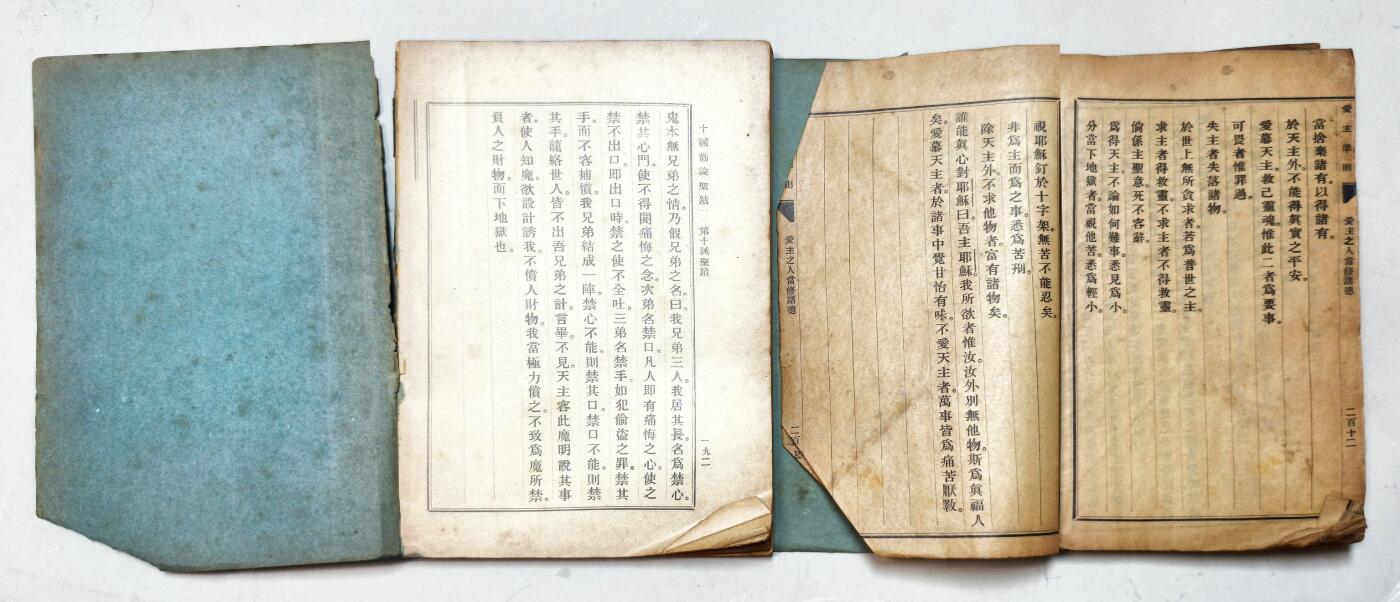 十誡勸論聖蹟 第十誡聖蹟 一九二
鬼本無兄弟之情。乃假兄弟之名。曰我兄弟三人。我居其長。名爲禁心。
禁其心門。使不得開痛悔之念。次弟名禁口。凡人即有痛悔之心。使之
禁不出口。即出口時。禁之使不全吐。三弟名禁手。如犯偷盜之罪。禁其
手。而不容補償。我兄弟結成一陣。禁心不能。則禁其口。禁口不能。則禁
其手。籠絡世人。皆不出吾兄弟之計。言畢。不見。天主容此魔明說其事
者。使人知魔。欲設計誘我。不償人財物。我當極力償之。不致爲魔所禁。
負人之財物。而下地獄也。
愛主準則 愛主之人當修諸德 二百十二
當捨棄諸有。以得諸有。
於天主外。不能得眞實之平安。
愛慕天主。救己靈魂。惟此二者爲要事。
可畏者惟罪過。
失主者失落諸物。
於世上無所貪求者。若爲普世之主。
求主者得救靈。不求主者不得救靈。
倘係主聖意。死不容辭。
爲得天主。不論如何難事。悉見爲小。
分當下地獄者。當視他苦。悉爲輕小。
視耶穌釘於十字架。無苦不能忍矣。
非爲主而爲之事。悉爲苦刑。
除天主外。不求他物者。富有諸物矣。
誰能眞心對耶穌曰。吾主耶穌。我所欲者惟汝。汝外別無他物。斯爲眞福人
矣。愛慕天主者。於諸事中覺甘怡有味。不愛天主者。萬事皆爲痛苦厭斁。
則 愛主之人當修諸德 二百